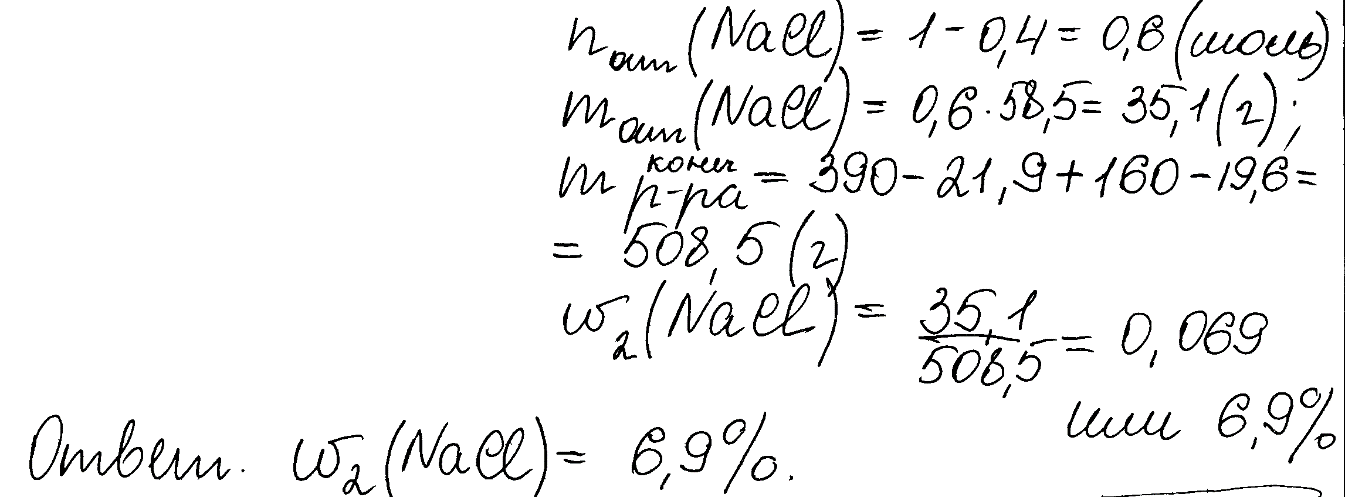 n ост (NaCl) = 1 - 0,4 = 0,6 (моль)
m ост (NaCl) = 0,6 · 58,5 = 35,1 (г);
m конеч р-ра = 390 - 21,9 + 160 - 19,6 =
= 508,5 (г)
w₂(NaCl) = 35,1 / 508,5 = 0,069
или 6,9%
Ответ. w₂(NaCl) = 6,9%.